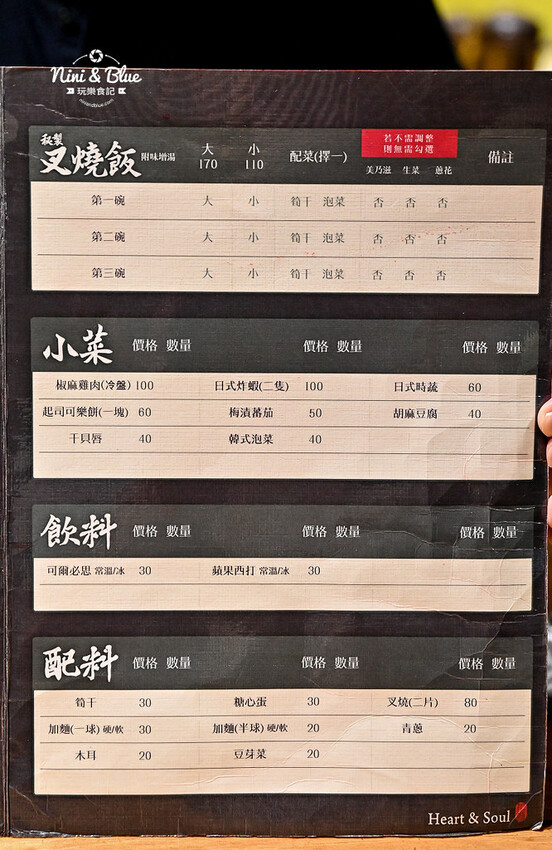 Nini & Blue
玩樂食記
niniandblue.com
秘製
叉燒飯 附味增湯 大 170 小 110 配菜(擇一) 若不需調整 則無需勾選 美乃滋 生菜 蔥花 備註
第一碗 大 小 筍干 泡菜 否 否 否
第二碗 大 小 筍干 泡菜 否 否 否
第三碗 大 小 筍干 泡菜 否 否 否
小菜 價格 數量 價格 數量 價格 數量
椒麻雞肉(冷盤) 100 日式炸蝦(二隻) 100 日式時蔬 60
起司可樂餅(一塊) 60 梅漬蕃茄 50 胡麻豆腐 40
干貝唇 40 韓式泡菜 40
飲料 價格 數量 價格 數量 價格 數量
可爾必思 常溫/冰 30 蘋果西打 常溫/冰 30
配料 價格 數量 價格 數量 價格 數量
筍干 30 糖心蛋 30 叉燒(二片) 80
加麵(一球) 硬/軟 30 加麵(半球) 硬/軟 20 青蔥 20
木耳 20 豆芽菜 20
Heart & Soul